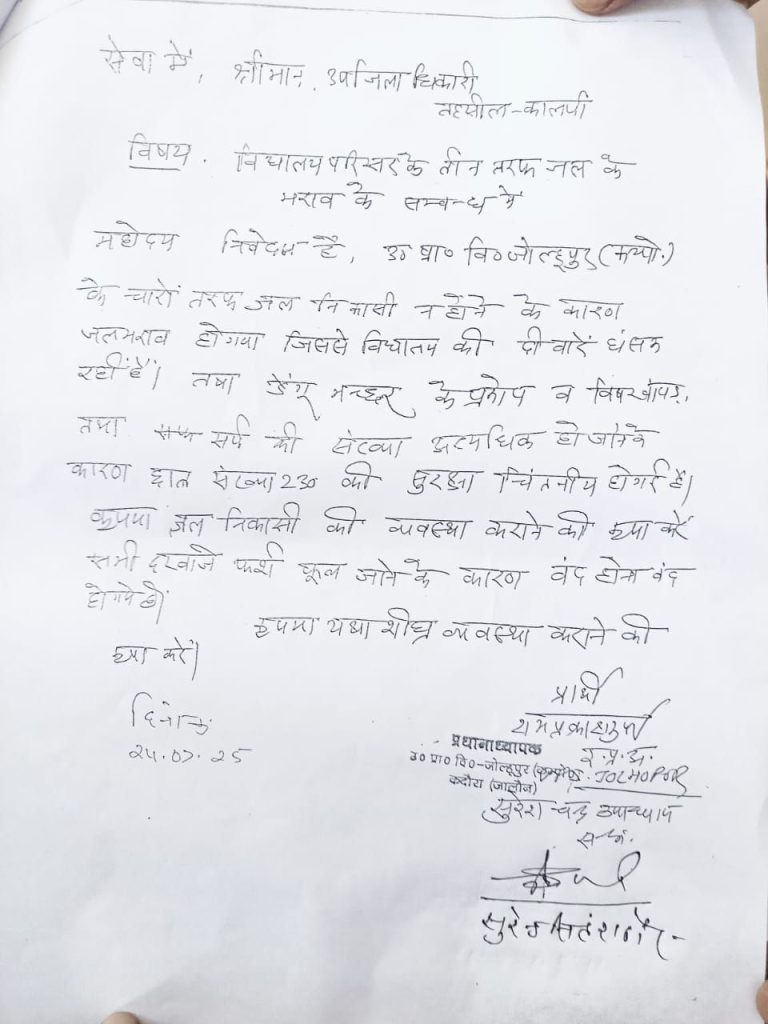 सेवा में, श्रीमान, उपजिलाधिकारी
तहसील-कालपी
विषय. विद्यालय परिसर के तीन तरफ जल के
भराव के सम्बन्ध में
महोदय निवेदन है, उ० प्रा० वि० जोल्हूपुर (कम्पो.)
के चारों तरफ जल निकासी न होने के कारण
जलभराव होगया जिससे विद्यालय की दीवारें धंसक
रहीं हैं। तथा डेंगू मच्छर के प्रकोप व विषखोपड़,
तथा सर्प की संख्या अत्यधिक हो जाने के
कारण छात्र संख्या 230 की सुरक्षा चिंतनीय होगई है।
कृपया जल निकासी की व्यवस्था कराने की कृपा करें
सभी दरवाजे फर्श फूल जाने के कारण बंद होना बंद
होगये हैं।
कृपया यथा शीघ्र व्यवस्था कराने की
कृपा करें।
दिनांक
25.07.25
प्रार्थी
रामप्रकाश
प्रधानाध्यापक
इ.प्र.अ.
उ० प्रा० वि०-जोल्हूपुर (कम्पोजिट) JOLHUPUR
कदौरा (जालौन)
सुरेश चन्द्र उपाध्याय
स.अ.